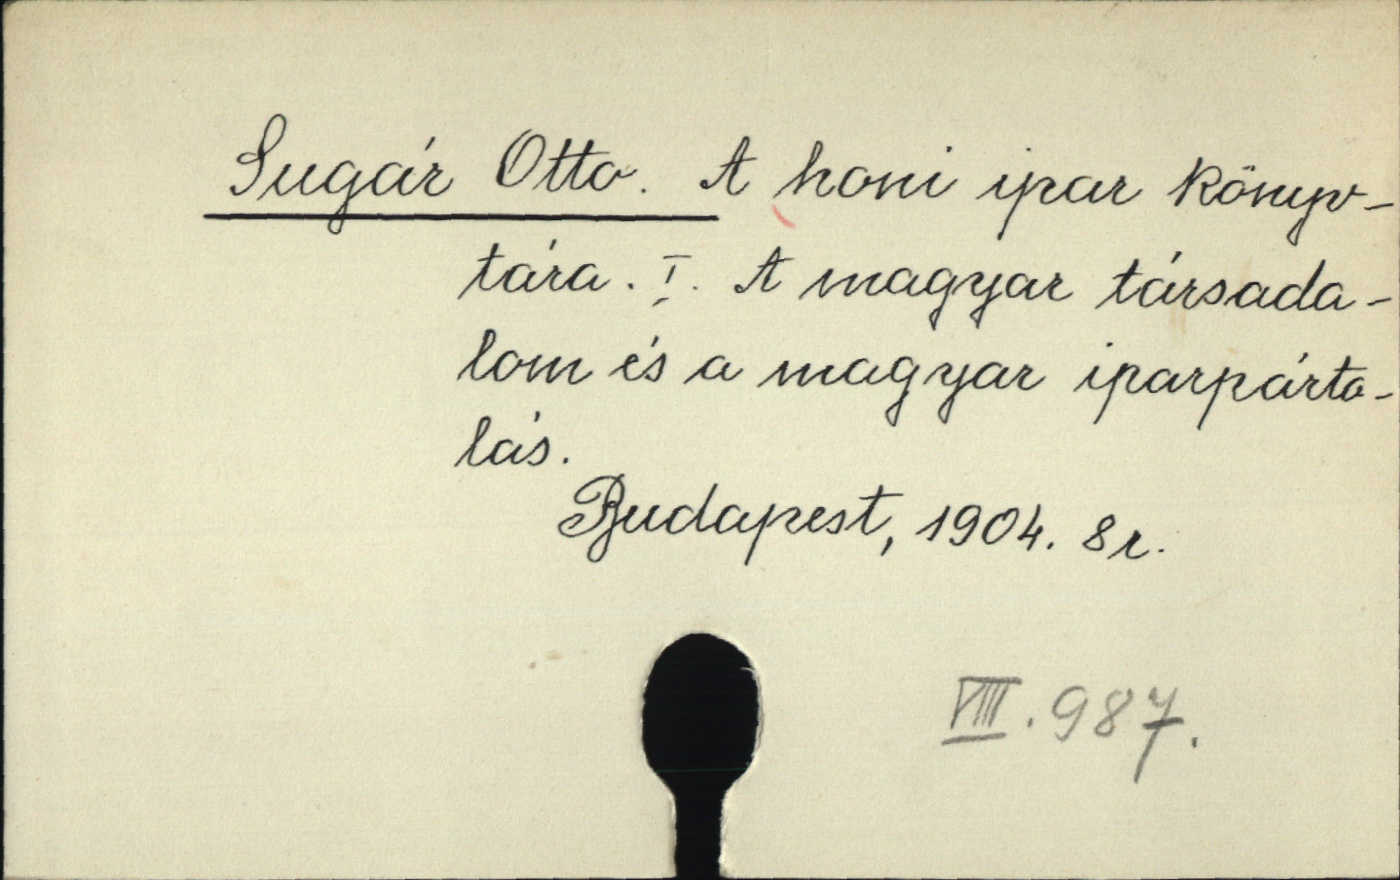 Sugár Otto. A honi ipar könyv-
tára. I. A magyar társada-
lom és a magyar iparpárto-
lás.
Budapest, 1904. 8r.
VIII. 987.